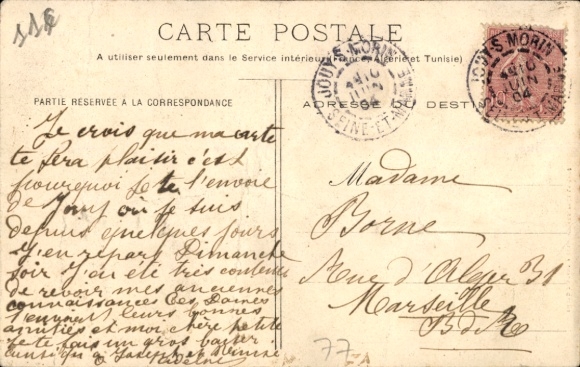 116
CARTE POSTALE
A utiliser seulement dans le Service intérieur (France, Algérie et Tunisie)
PARTIE RÉSERVÉE A LA CORRESPONDANCE
ADRESSE DU DESTIN
JOUY-S-MORIN
10
JUIN
04
SEINE-ET-MARNE
JOUY-S-MORIN
10
JUIN
04
Je crois que ma carte
te fera plaisir c'est
pourquoi je te l'envoie
de Jouy où je suis
depuis quelques jours
j'en repars Dimanche
soir j'ai été très contente
de revoir mes anciennes
connaissances Ces Dames
t'envoient leurs bonnes
amitiés et moi chère petite
je te fais un gros baiser
ainsi qu'a Joseph et
Madame
Borne
Rue d'Alger 31
Marseille
B d R
77